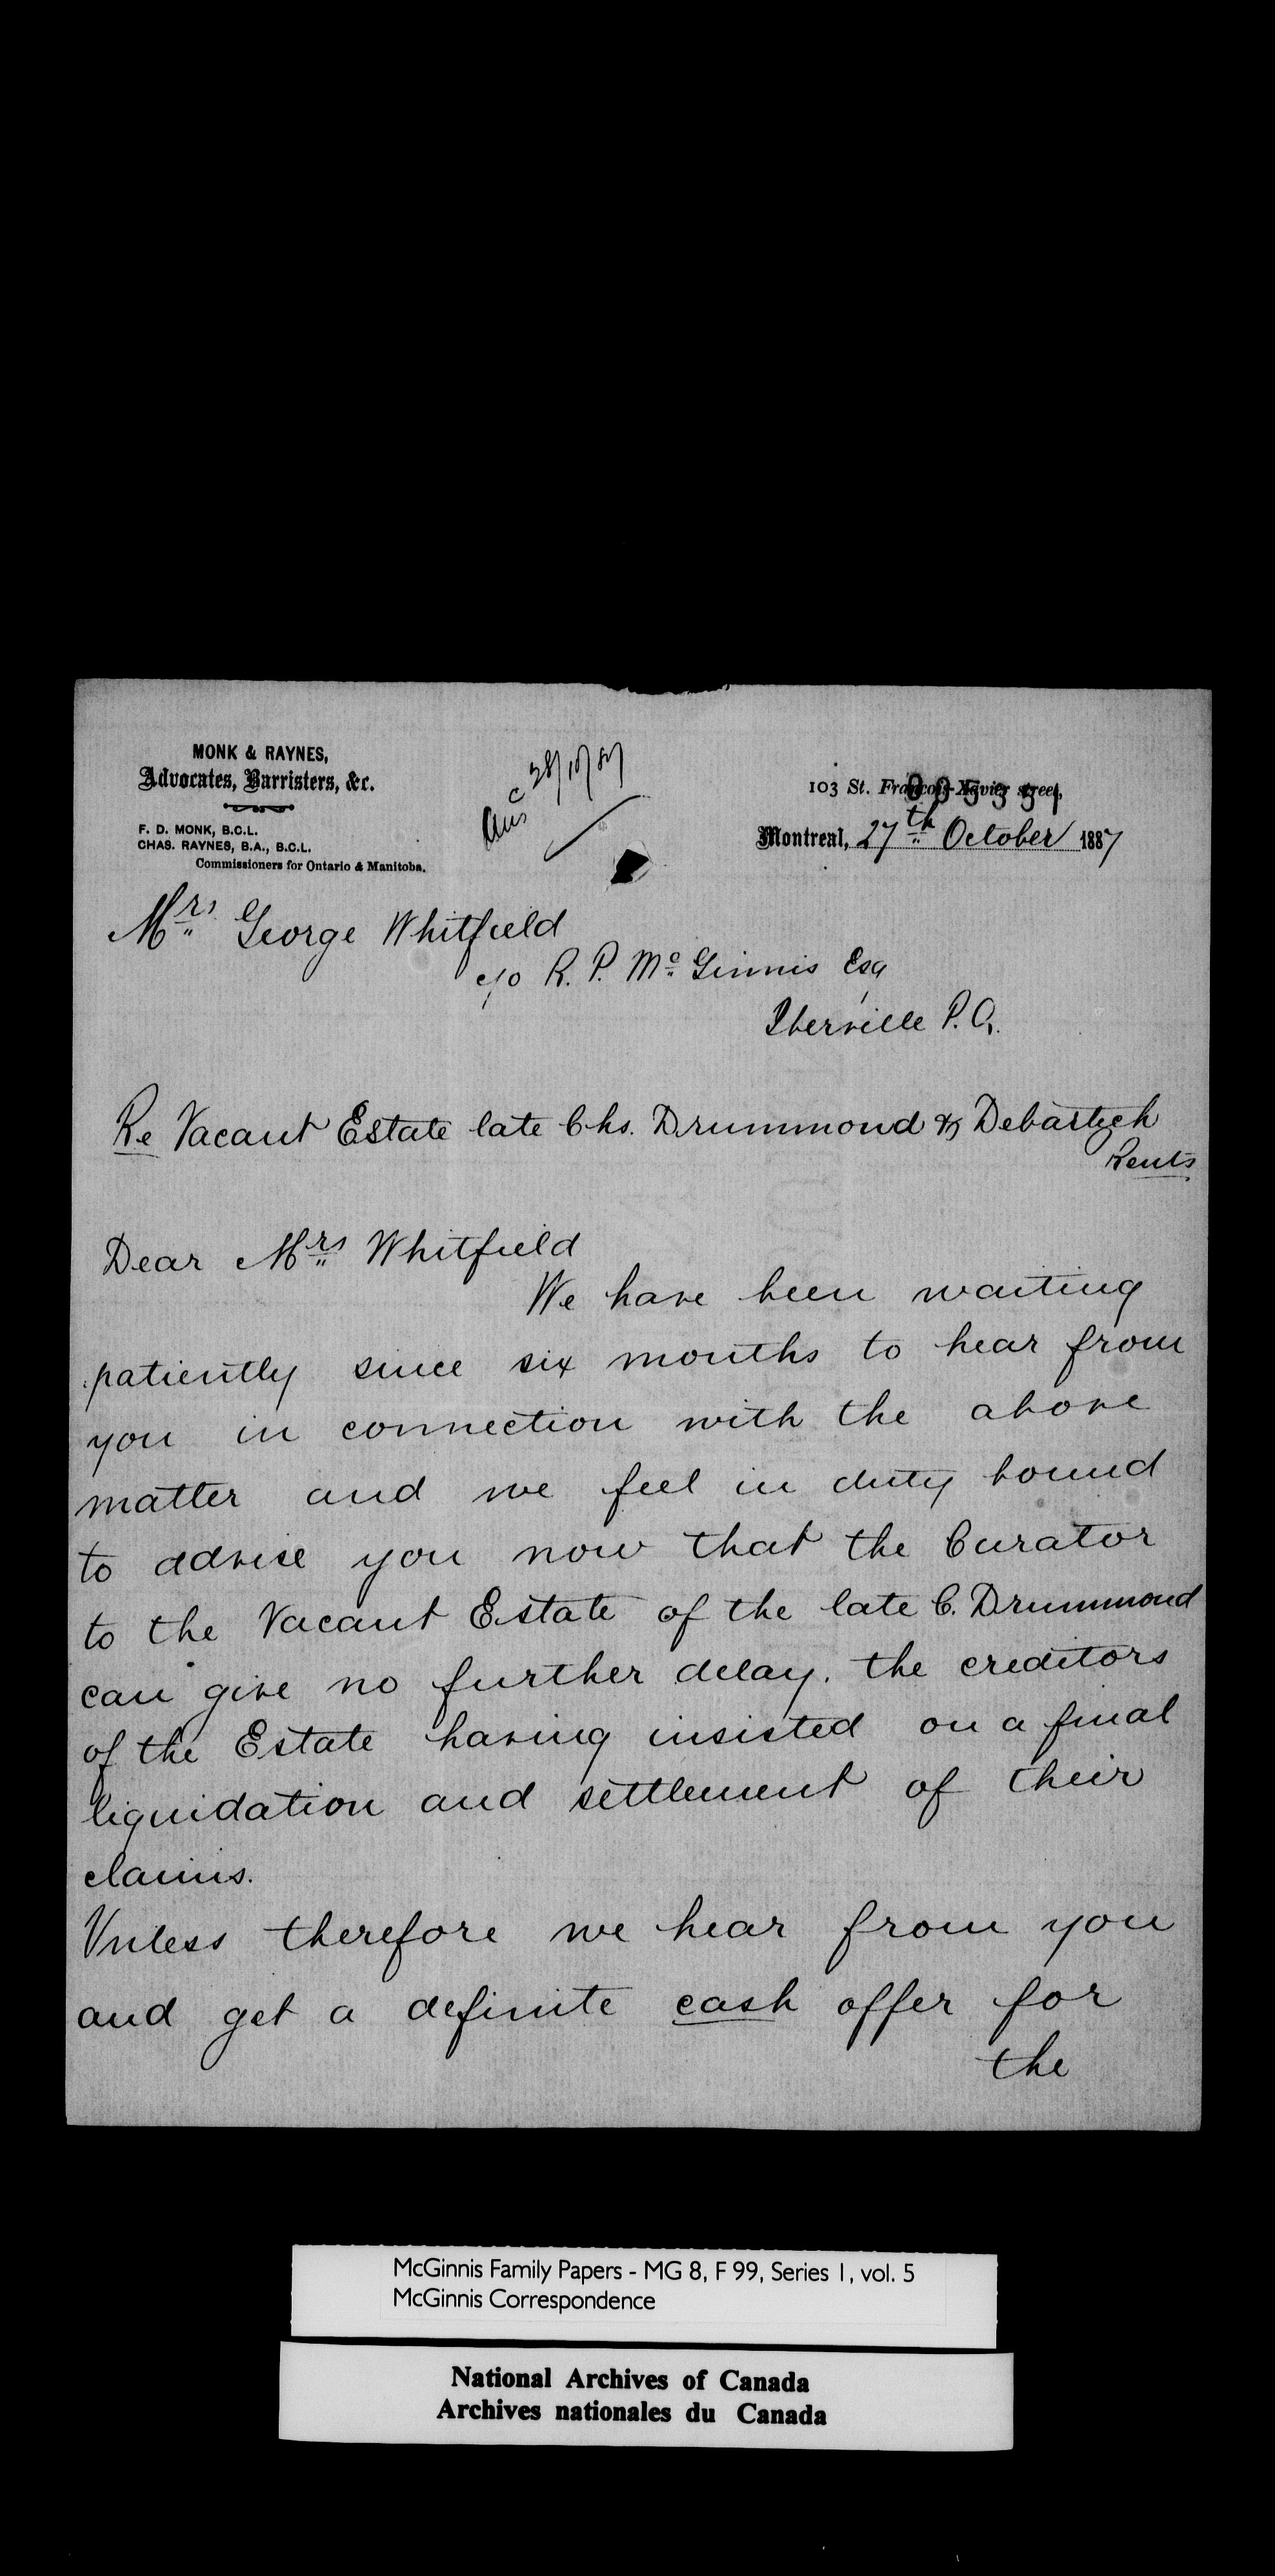 MONK & RAYNES,
Advocates, Barristers, &c.
F. D. MONK, B.C.L.
CHAS. RAYNES, B.A., B.C.L.
Commissioners for Ontario & Manitoba.
Ansc 28/10/87
103 St. François-Xavier street,
Montreal, 27th October 1887
Mrs George Whitfield
c/o R. P. McGinnis Esq
Iberville P.Q.
Re Vacant Estate late Chs. Drummond & Debartzch
Rents
Dear Mrs Whitfield
We have been waiting
patiently since six months to hear from
you in connection with the above
matter and we feel in duty bound
to advise you now that the Curator
to the Vacant Estate of the late C. Drummond
can give no further delay. the creditors
of the Estate having insisted on a final
liquidation and settlement of their
claims.
Unless therefore we hear from you
and get a definite cash offer for
the
McGinnis Family Papers - MG 8, F 99, Series 1, vol. 5
McGinnis Correspondence
National Archives of Canada
Archives nationales du Canada